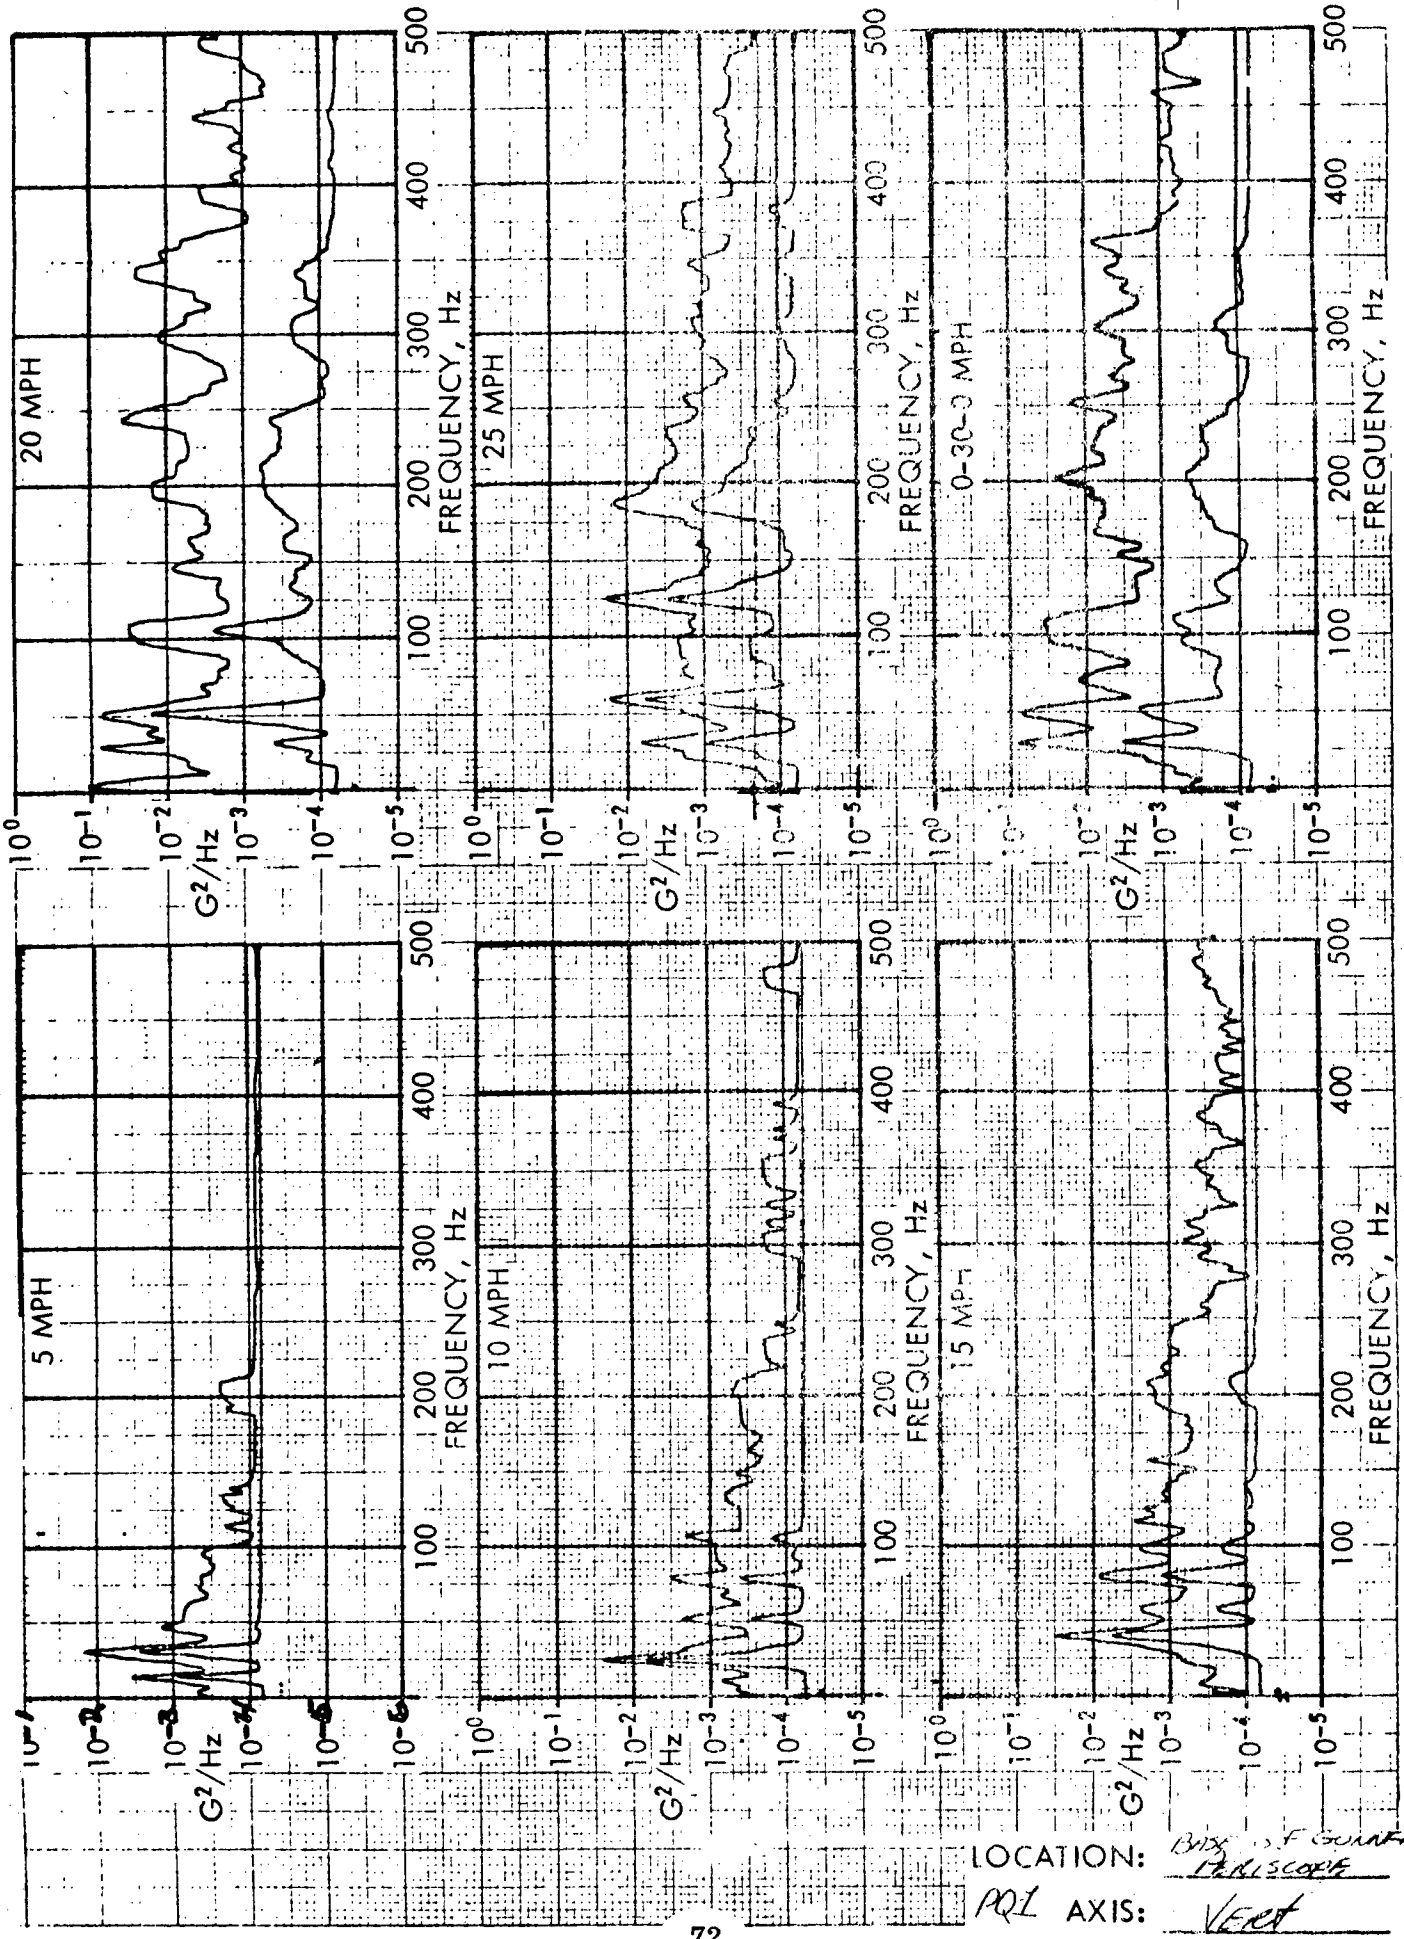 5 MPH
10⁻¹
10⁻²
10⁻³
10⁻⁴
10⁻⁵
10⁻⁶
G²/Hz
100
200
300
400
500
FREQUENCY, Hz
20 MPH
10⁰
10⁻¹
10⁻²
10⁻³
10⁻⁴
10⁻⁵
G²/Hz
100
200
300
400
500
FREQUENCY, Hz
10 MPH
10⁰
10⁻¹
10⁻²
10⁻³
10⁻⁴
10⁻⁵
G²/Hz
100
200
300
400
500
FREQUENCY, Hz
25 MPH
10⁰
10⁻¹
10⁻²
10⁻³
10⁻⁴
10⁻⁵
G²/Hz
100
200
300
400
500
FREQUENCY, Hz
15 MPH
10⁰
10⁻¹
10⁻²
10⁻³
10⁻⁴
10⁻⁵
G²/Hz
100
200
300
400
500
FREQUENCY, Hz
0-30-0 MPH
10⁰
10⁻²
10⁻³
10⁻⁴
10⁻⁵
G²/Hz
100
200
300
400
500
FREQUENCY, Hz
LOCATION: PERISCOPE
PQ1 AXIS: VERT
72